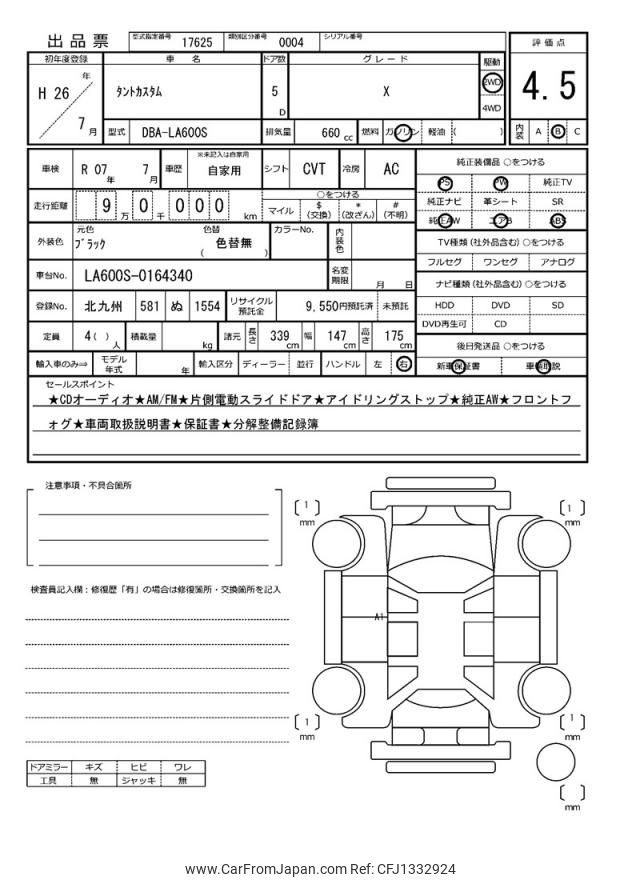 出品票 型式指定番号 17625 類別区分番号 0004 シリアル番号
評価点
4.5
内装 A B C
初年度登録 車名 ドア数 グレード 駆動
H 26 年 7 月 タントカスタム 5 D X 2WD 4WD
型式 DBA-LA600S 排気量 660 cc 燃料 ガソリン 軽油 ( )
車検 R 07 年 7 月 車歴 ※未記入は自家用 自家用 シフト CVT 冷房 AC
走行距離 9 万 0 千 0 0 0 km ○をつける
マイル $(交換) *(改ざん) #(不明)
外装色 元色 ブラック 色替 色替無 ( ) カラーNo. 内装色
車台No. LA600S-0164340 名変期限 月 日
登録No. 北九州 581 ぬ 1554 リサイクル預託金 9,550円預託済 未預託
定員 4( ) 人 積載量 kg 諸元 長さ 339 cm 幅 147 cm 高さ 175 cm
輸入車のみ⇒ モデル年式 年 輸入区分 ディーラー 並行 ハンドル 左 右
純正装備品 ○をつける
PS PW 純正TV
純正ナビ 革シート SR
純正AW エアB ABS
TV種類 (社外品含む) ○をつける
フルセグ ワンセグ アナログ
ナビ種類 (社外品含む) ○をつける
HDD DVD SD
DVD再生可 CD
後日発送品 ○をつける
新車保証書 車輌取説
セールスポイント
★CDオーディオ★AM/FM★片側電動スライドドア★アイドリングストップ★純正AW★フロントフ
ォグ★車両取扱説明書★保証書★分解整備記録簿
注意事項・不具合箇所
検査員記入欄：修復歴「有」の場合は修復箇所・交換箇所を記入
ドアミラー キズ ヒビ ワレ
工具 無 ジャッキ 無
〔 1 〕 mm
〔 1 〕 mm
A1
〔 1 〕 mm
〔 1 〕 mm
〔 〕 mm
www.CarFromJapan.com Ref: CFJ1332924